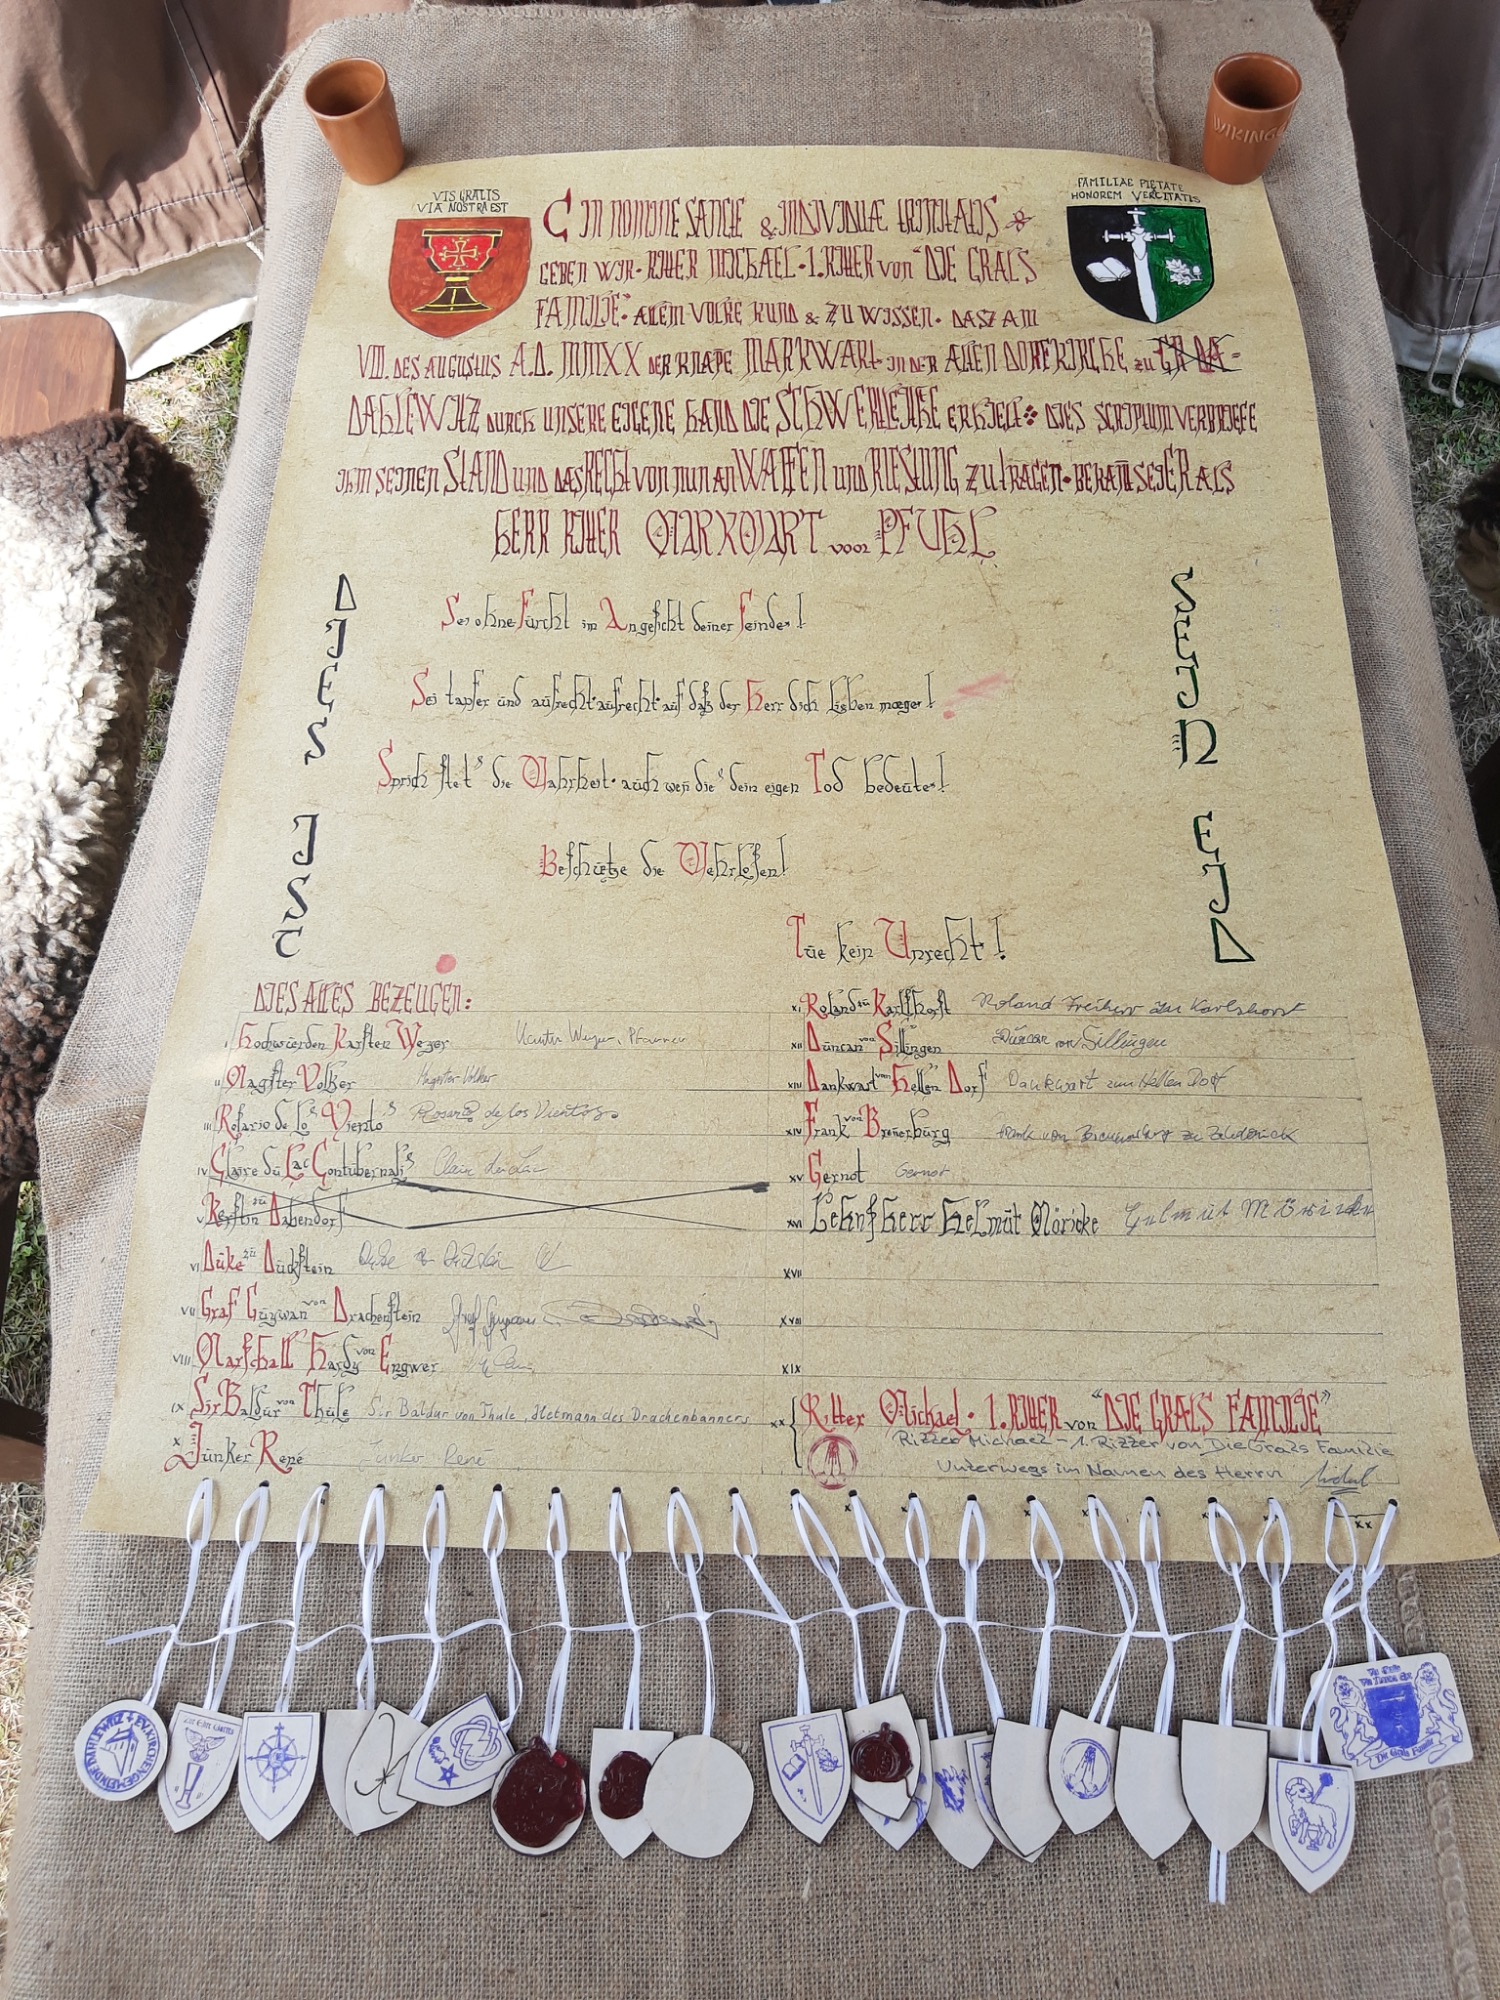 VIS GRALIS
VIA NOSTRA EST
FAMILIAE PIETATE
HONOREM VERCITATIS
WIKING
C IN NOMINE SANCTE & INDIVIDUÆ TRINITATIS
GEBEN WIR · RITTER MICHAEL · 1. RITTER von "DIE GRALS
FAMILIE" · ALLEM VOLKE KUND & ZU WISSEN · DASZ AM
VIII. DES AUGUSTUS A.D. MMXX DER KNAPE MARKWART IN DER ALTEN DORFKIRCHE zu
DAHLEWITZ DURCH UNSERE EIGENE HAND DIE SCHWERTLEITE ERHIELT DIES SCRIPTUM VERBRIEFE
IHM SEINEN STAND UND DAS RECHT VON NUN AN WAFFEN UND RÜSTUNG ZU TRAGEN · BEKAÑT SEI ER ALS
HERR RITTER MARKWART von PFUHL
DIES IST
SEIN EID
Sei ohne Furcht im Angesicht deiner Feinde!
Sei tapfer und aufrecht · aufrecht · auf daß der Herr dich lieben mœge!
Sprich stets die Wahrheit · auch weñ dies dein eigen Tod bedeutet!
Beschütze die Wehrlosen!
Tue kein Unrecht!
DIES ALLES BEZEUGEN:
I Hochwürden Karsten Weyer Karsten Weyer, Pfarrer
II Magister Volker Magister Volker
III Rosario de los Vientos Rosario de los Vientos
IV Claire du Lac Contubernalis Claire du Lac
V Kerstin zu Dabendorf
VI Duke zu Duckstein
VII Graf Guywan von Drachenstein Graf
VIII Marschall Hardy von Engwer
IX Sir Baldur von Thule Sir Baldur von Thule, Hetmann des Drachenbanners
X Junker René Junker René
XI Roland zu Karlshorst Roland Freiherr zu Karlshorst
XII Duncan von Sillingen Duncan von Sillingen
XIII Dankwart vom Hellen Dorf Dankwart zum Hellen Dorf
XIV Frank von Breñerburg
XV Gernot Gernot
XVI Lehnsherr Helmut Möricke Helmut Möricke
XVII
XVIII
XIX
XX Ritter Michael · 1. RITTER von "DIE GRALS FAMILIE"
Ritter Michael - 1. Ritter von Die Grals Familie
Unterwegs im Namen des Herrn
XX
EV. KIRCHENGEMEINDE DAHLEWITZ
Die Grals Familie